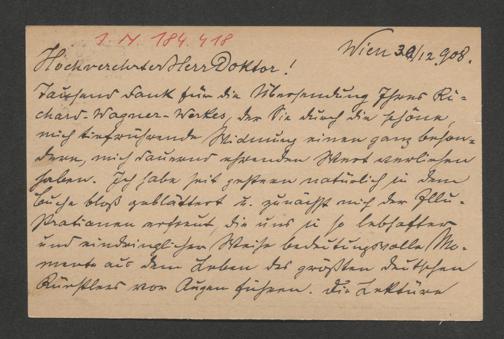 I. N. 184.418
Wien 30/12 908.
Hochverehrter Herr Doktor!
Tausend Dank für die Übersendung Ihres Ri-
chard-Wagner-Werkes, der Sie durch die schöne,
mich tiefrührende Widmung einen ganz beson-
dern, mich dauernd ehrenden Wert verliehen
haben. Ich habe seit gestern natürlich in dem
Buche bloß geblättert u. zunächst mich der Illu-
strationen erfreut, die uns in so lebhafter
und eindringlicher Weise bedeutungsvolle Mo-
mente aus dem Leben des größten deutschen
Künstlers vor Augen führen. Die Lektüre